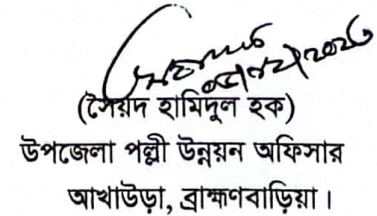 (সৈয়দ হামিদুল হক)
উপজেলা পল্লী উন্নয়ন অফিসার
আখাউড়া, ব্রাহ্মণবাড়িয়া।